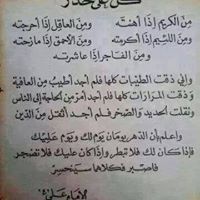 كن على حذر
من الكريم إذا أهنته ومن العاقل إذا أحرجته
ومن اللئيم إذا أكرمته ومن الأحمق إذا مازحته
ومن الفاجر إذا عاشرته
وإني ذقت الطيبات كلها فلم أجد أطيب من العافية
وذقت المرارات كلها فلم أجد أمر من الحاجة إلى الناس
ونقلت الحديد والصخر فلم أجد أثقل من الدين
وأعلم بأن الدهر يومان يوم لك ويوم عليك
فإذا كان لك فلا تبطر وإذا كان عليك فلا تضجر
فاصبر فكلاهما سينحسر
الإمام علي